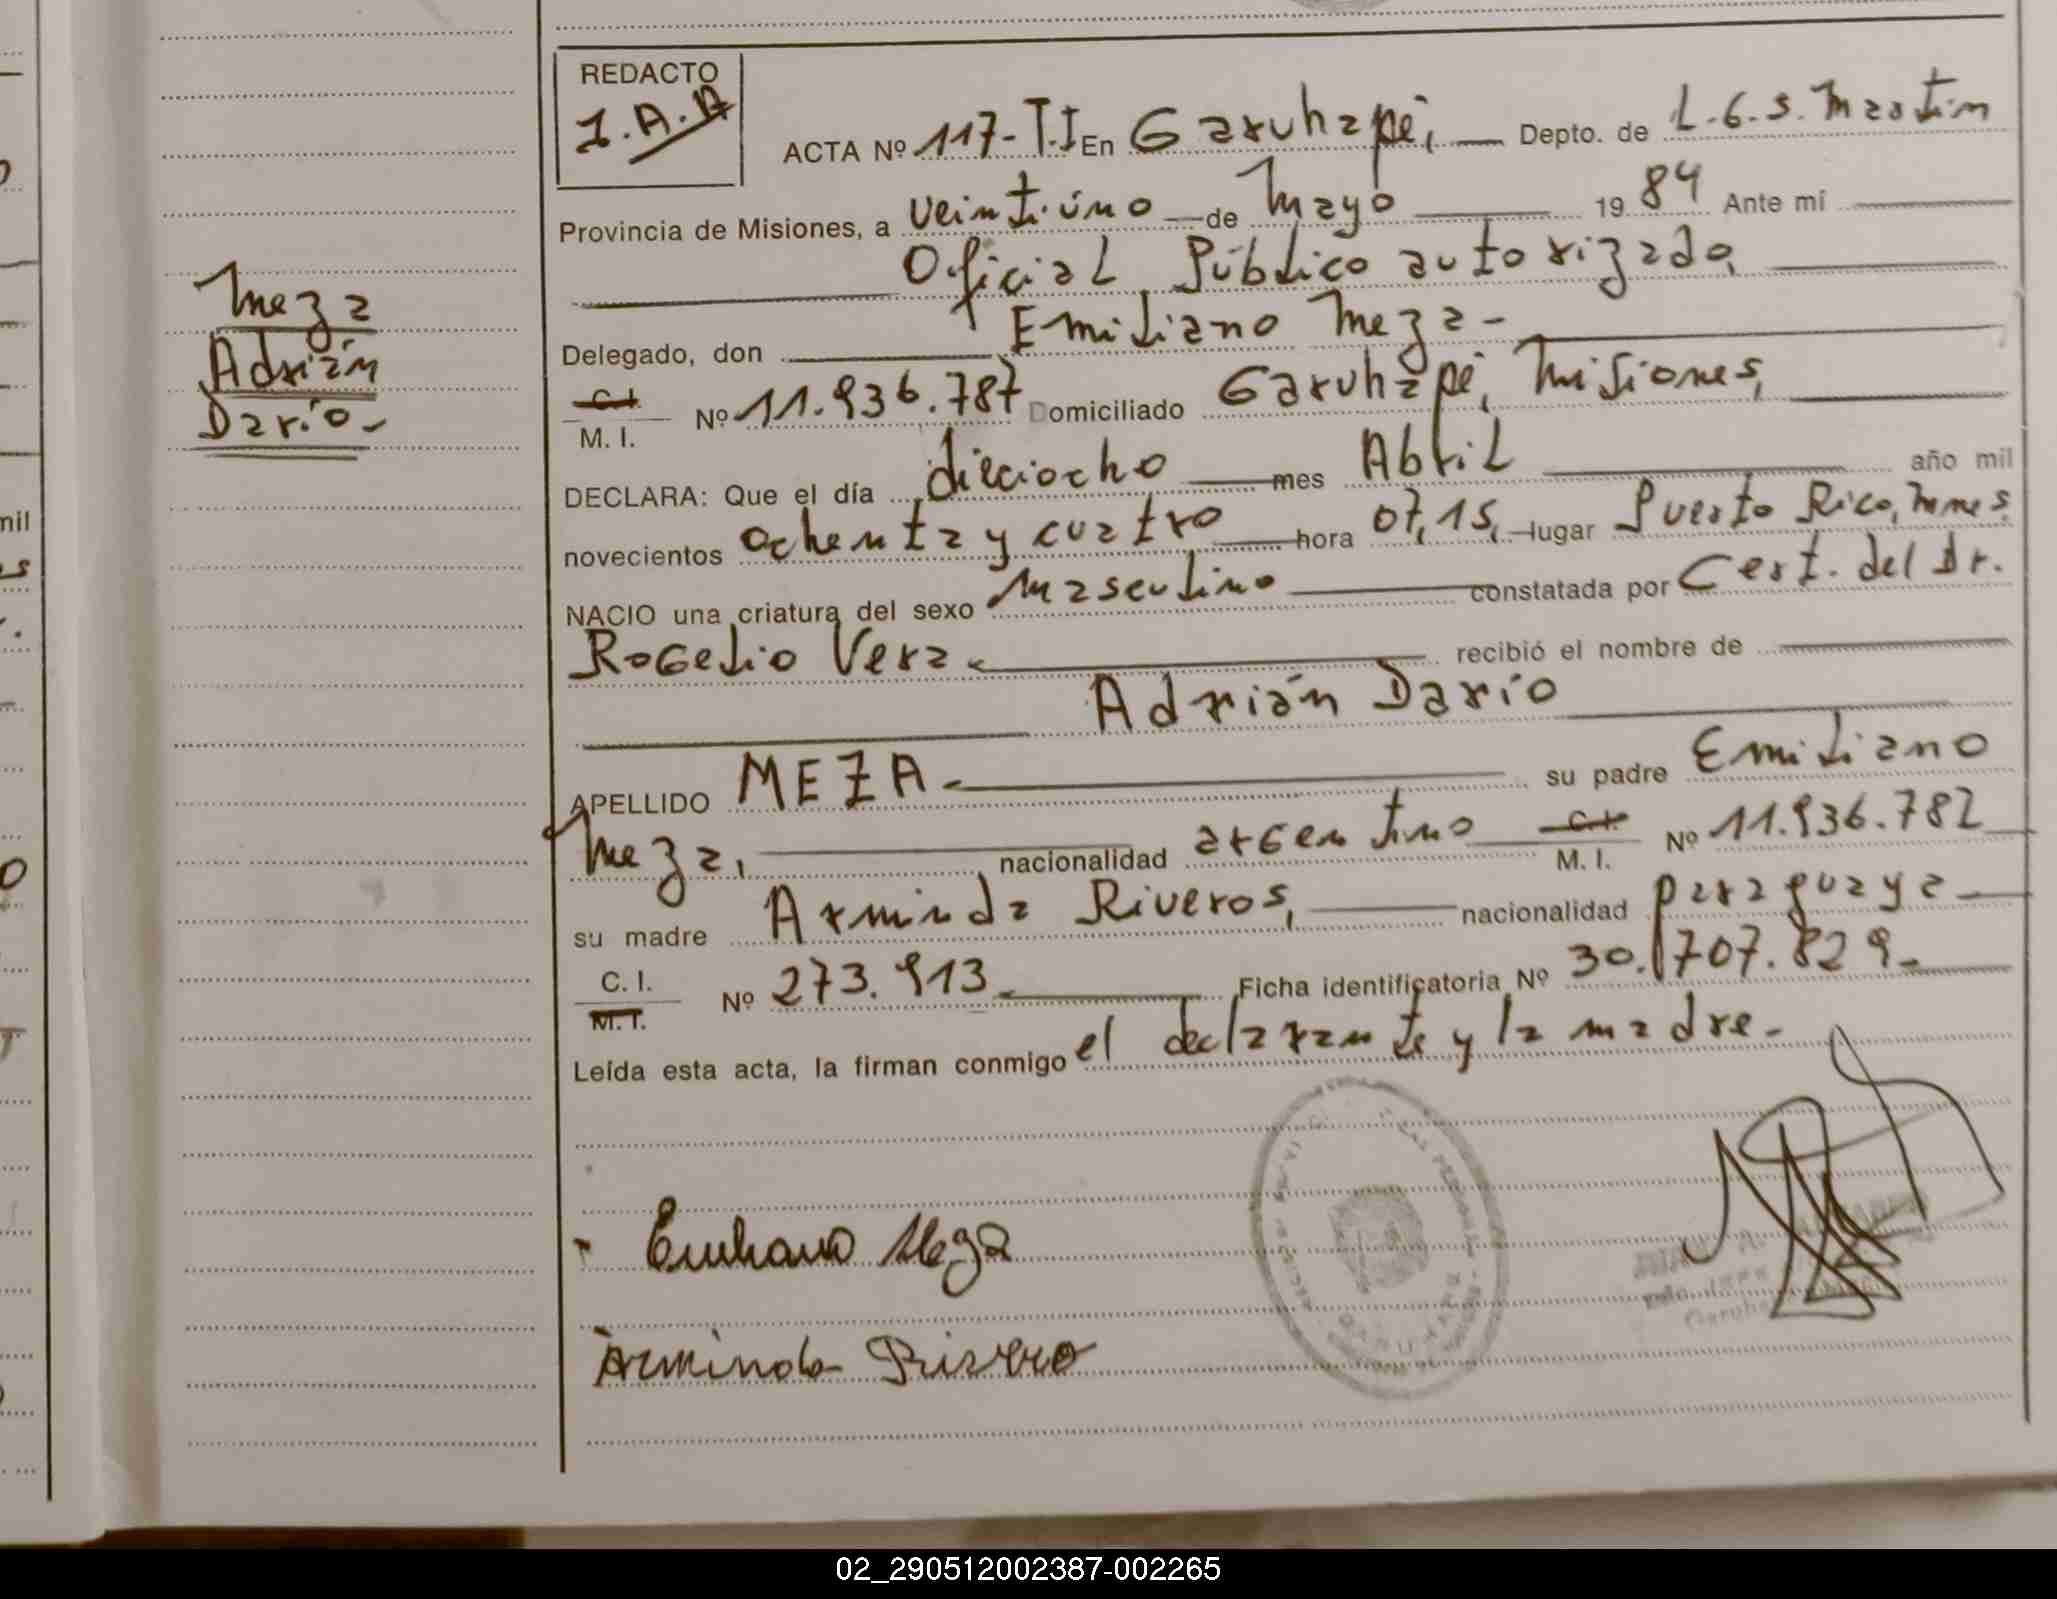 REDACTO
I.A.A
ACTA Nº 117-T.I En Garuhapé, Depto. de L.G.S. Martin
Provincia de Misiones, a veintiúno de Mayo 1984 Ante mí
Oficial Público autorizado,
Delegado, don Emiliano Meza-
C.I.
M. I. Nº 11.936.787 Domiciliado Garuhapé, Misiones,
DECLARA: Que el día dieciocho mes Abril año mil
novecientos ochenta y cuatro hora 07,15, lugar Puerto Rico, Mnes
NACIO una criatura del sexo masculino constatada por Cert. del Dr.
Rogelio Vera recibió el nombre de
Adrián Darío
APELLIDO MEZA su padre Emiliano
Meza, nacionalidad argentino C.I. M. I. Nº 11.936.782
su madre Arminda Riveros, nacionalidad paraguaya
C. I.
M. I. Nº 273.913 Ficha identificatoria Nº 30.707.829-
Leída esta acta, la firman conmigo el declarante y la madre-
Emiliano Meza
Arminda Rivero
Meza
Adrián
Darío-
mil
02_290512002387-002265